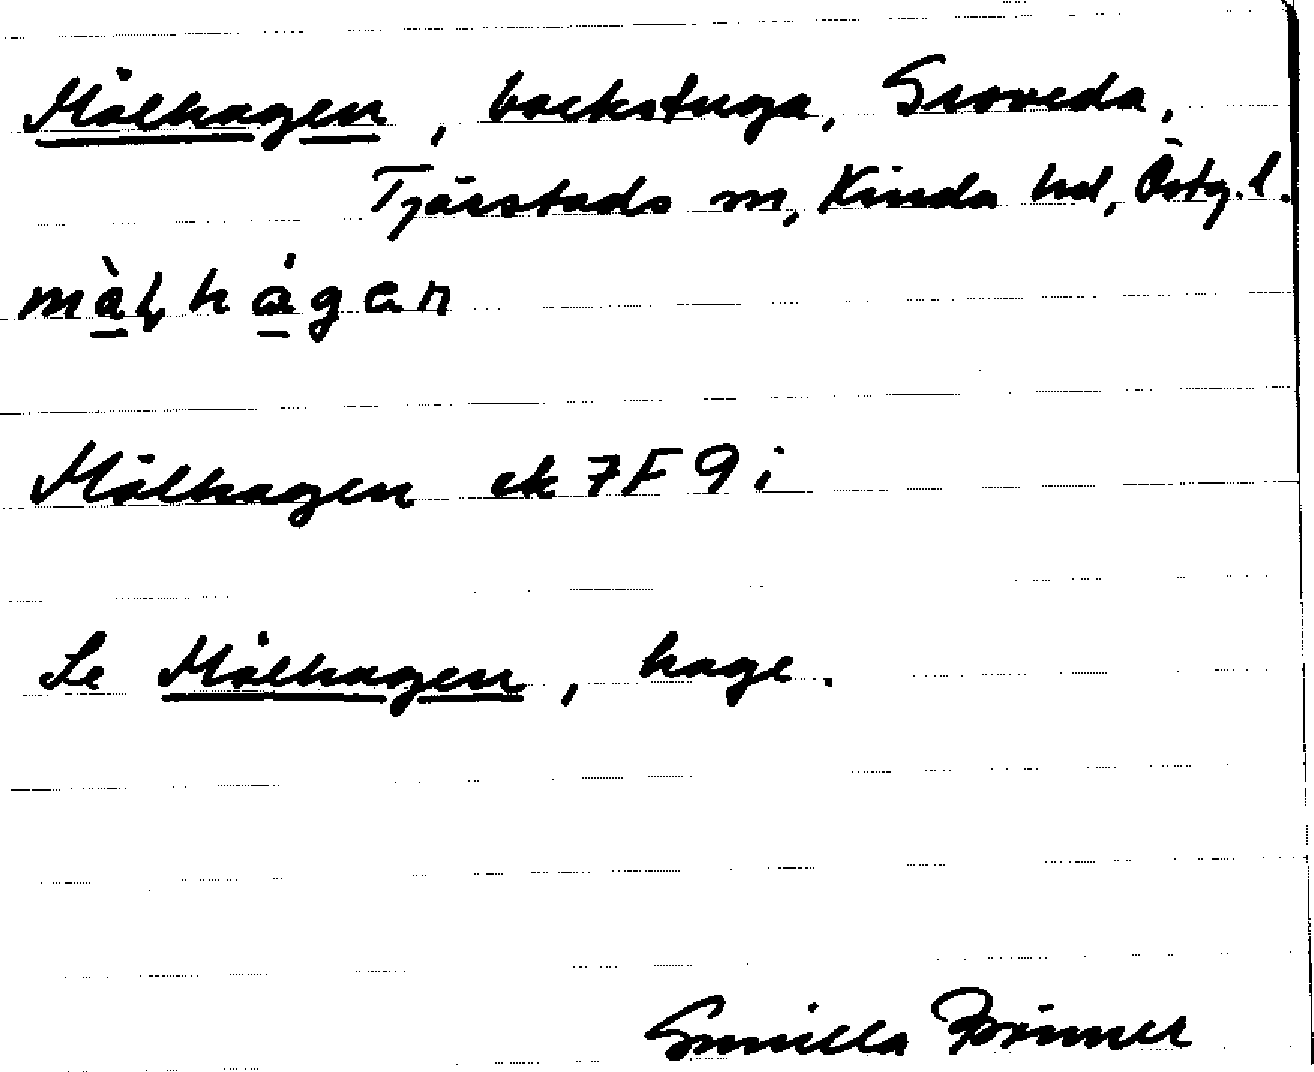 Målhagen, backstuga, Groveda,
Tjärstads sn, Kinda hd, Östg.l.
Målhagen ek 7F 9i
Se Målhagen, hage.
Gunilla